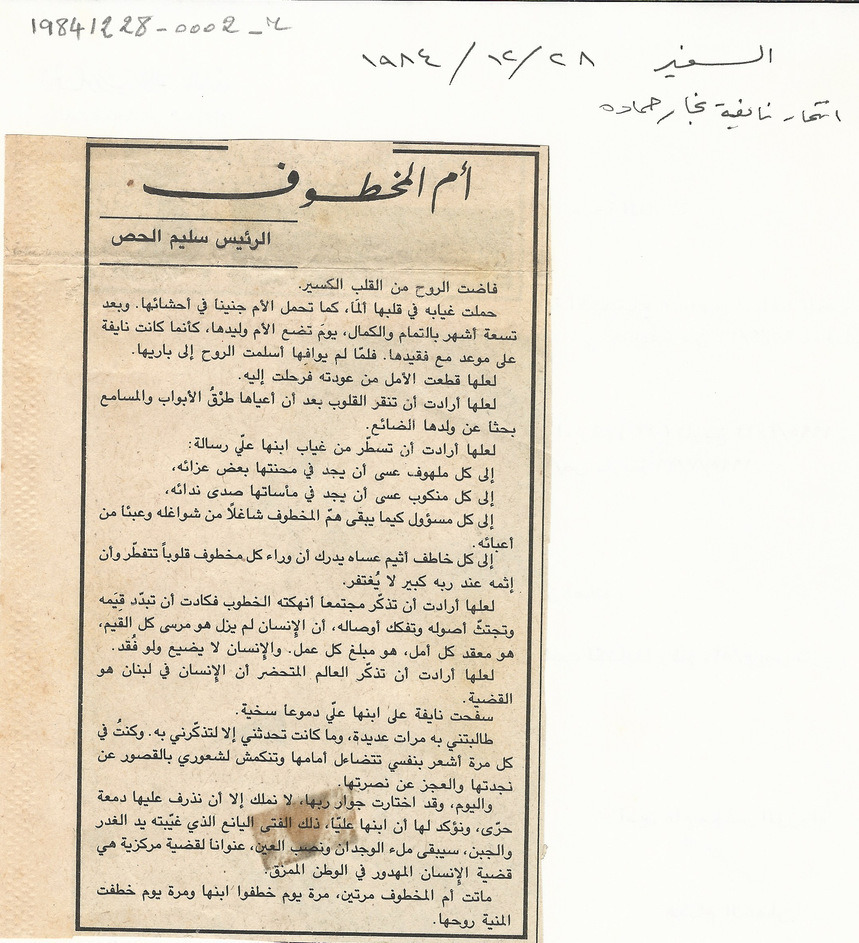 19841228-0002_2
السفير ٢٨/١٢/١٩٨٤
انتحار نايفة نجار حماده
أم المخطوف
الرئيس سليم الحص
فاضت الروح من القلب الكسير.
حملت غيابه في قلبها ألمَا، كما تحمل الأم جنينا في أحشائها. وبعد
تسعة أشهر بالتمام والكمال، يومَ تضع الأم وليدها، كأنما كانت نايفة
على موعد مع فقيدها. فلمّا لم يوافها أسلمت الروح إلى باريها.
لعلها قطعت الأمل من عودته فرحلت إليه.
لعلها أرادت أن تنقر القلوب بعد أن أعياها طرْقُ الأبواب والمسامع
بحثا عن ولدها الضائع.
لعلها أرادت أن تسطّر من غياب ابنها علّي رسالة:
إلى كل ملهوف عسى أن يجد في محنتها بعض عزائه،
إلى كل منكوب عسى أن يجد في مأساتها صدى ندائه،
إلى كل مسؤول كيما يبقى همّ المخطوف شاغلًا من شواغله وعبئا من
أعبائه.
إلى كل خاطف أثيم عساه يدرك أن وراء كل مخطوف قلوباً تتفطّر وأن
إثمه عند ربه كبير لا يُغتفر.
لعلها أرادت أن تذكّر مجتمعا أنهكته الخطوب فكادت أن تبدّد قيَمه
وتجتثّ أصوله وتفكك أوصاله، أن الإنسان لم يزل هو مرسى كل القيم،
هو معقد كل أمل، هو مبلغ كل عمل. والإنسان لا يضيع ولو فُقد.
لعلها أرادت أن تذكّر العالم المتحضر أن الإنسان في لبنان هو
القضية.
سفحت نايفة على ابنها علّي دموعاً سخية.
طالبتني به مرات عديدة، وما كانت تحدثني إلا لتذكّرني به. وكنتُ في
كل مرة أشعر بنفسي تتضاءل أمامها وتنكمش لشعوري بالقصور عن
نجدتها والعجز عن نصرتها.
واليوم، وقد اختارت جوار ربها، لا نملك إلا أن نذرف عليها دمعة
حرّى، ونؤكد لها أن ابنها عليّا، ذلك الفتى اليانع الذي غيّبته يد الغدر
والجبن، سيبقى ملء الوجدان ونصب العين، عنوانا لقضية مركزية هي
قضية الإنسان المهدور في الوطن الممزق.
ماتت أم المخطوف مرتين، مرة يوم خطفوا ابنها ومرة يوم خطفت
المنية روحها.